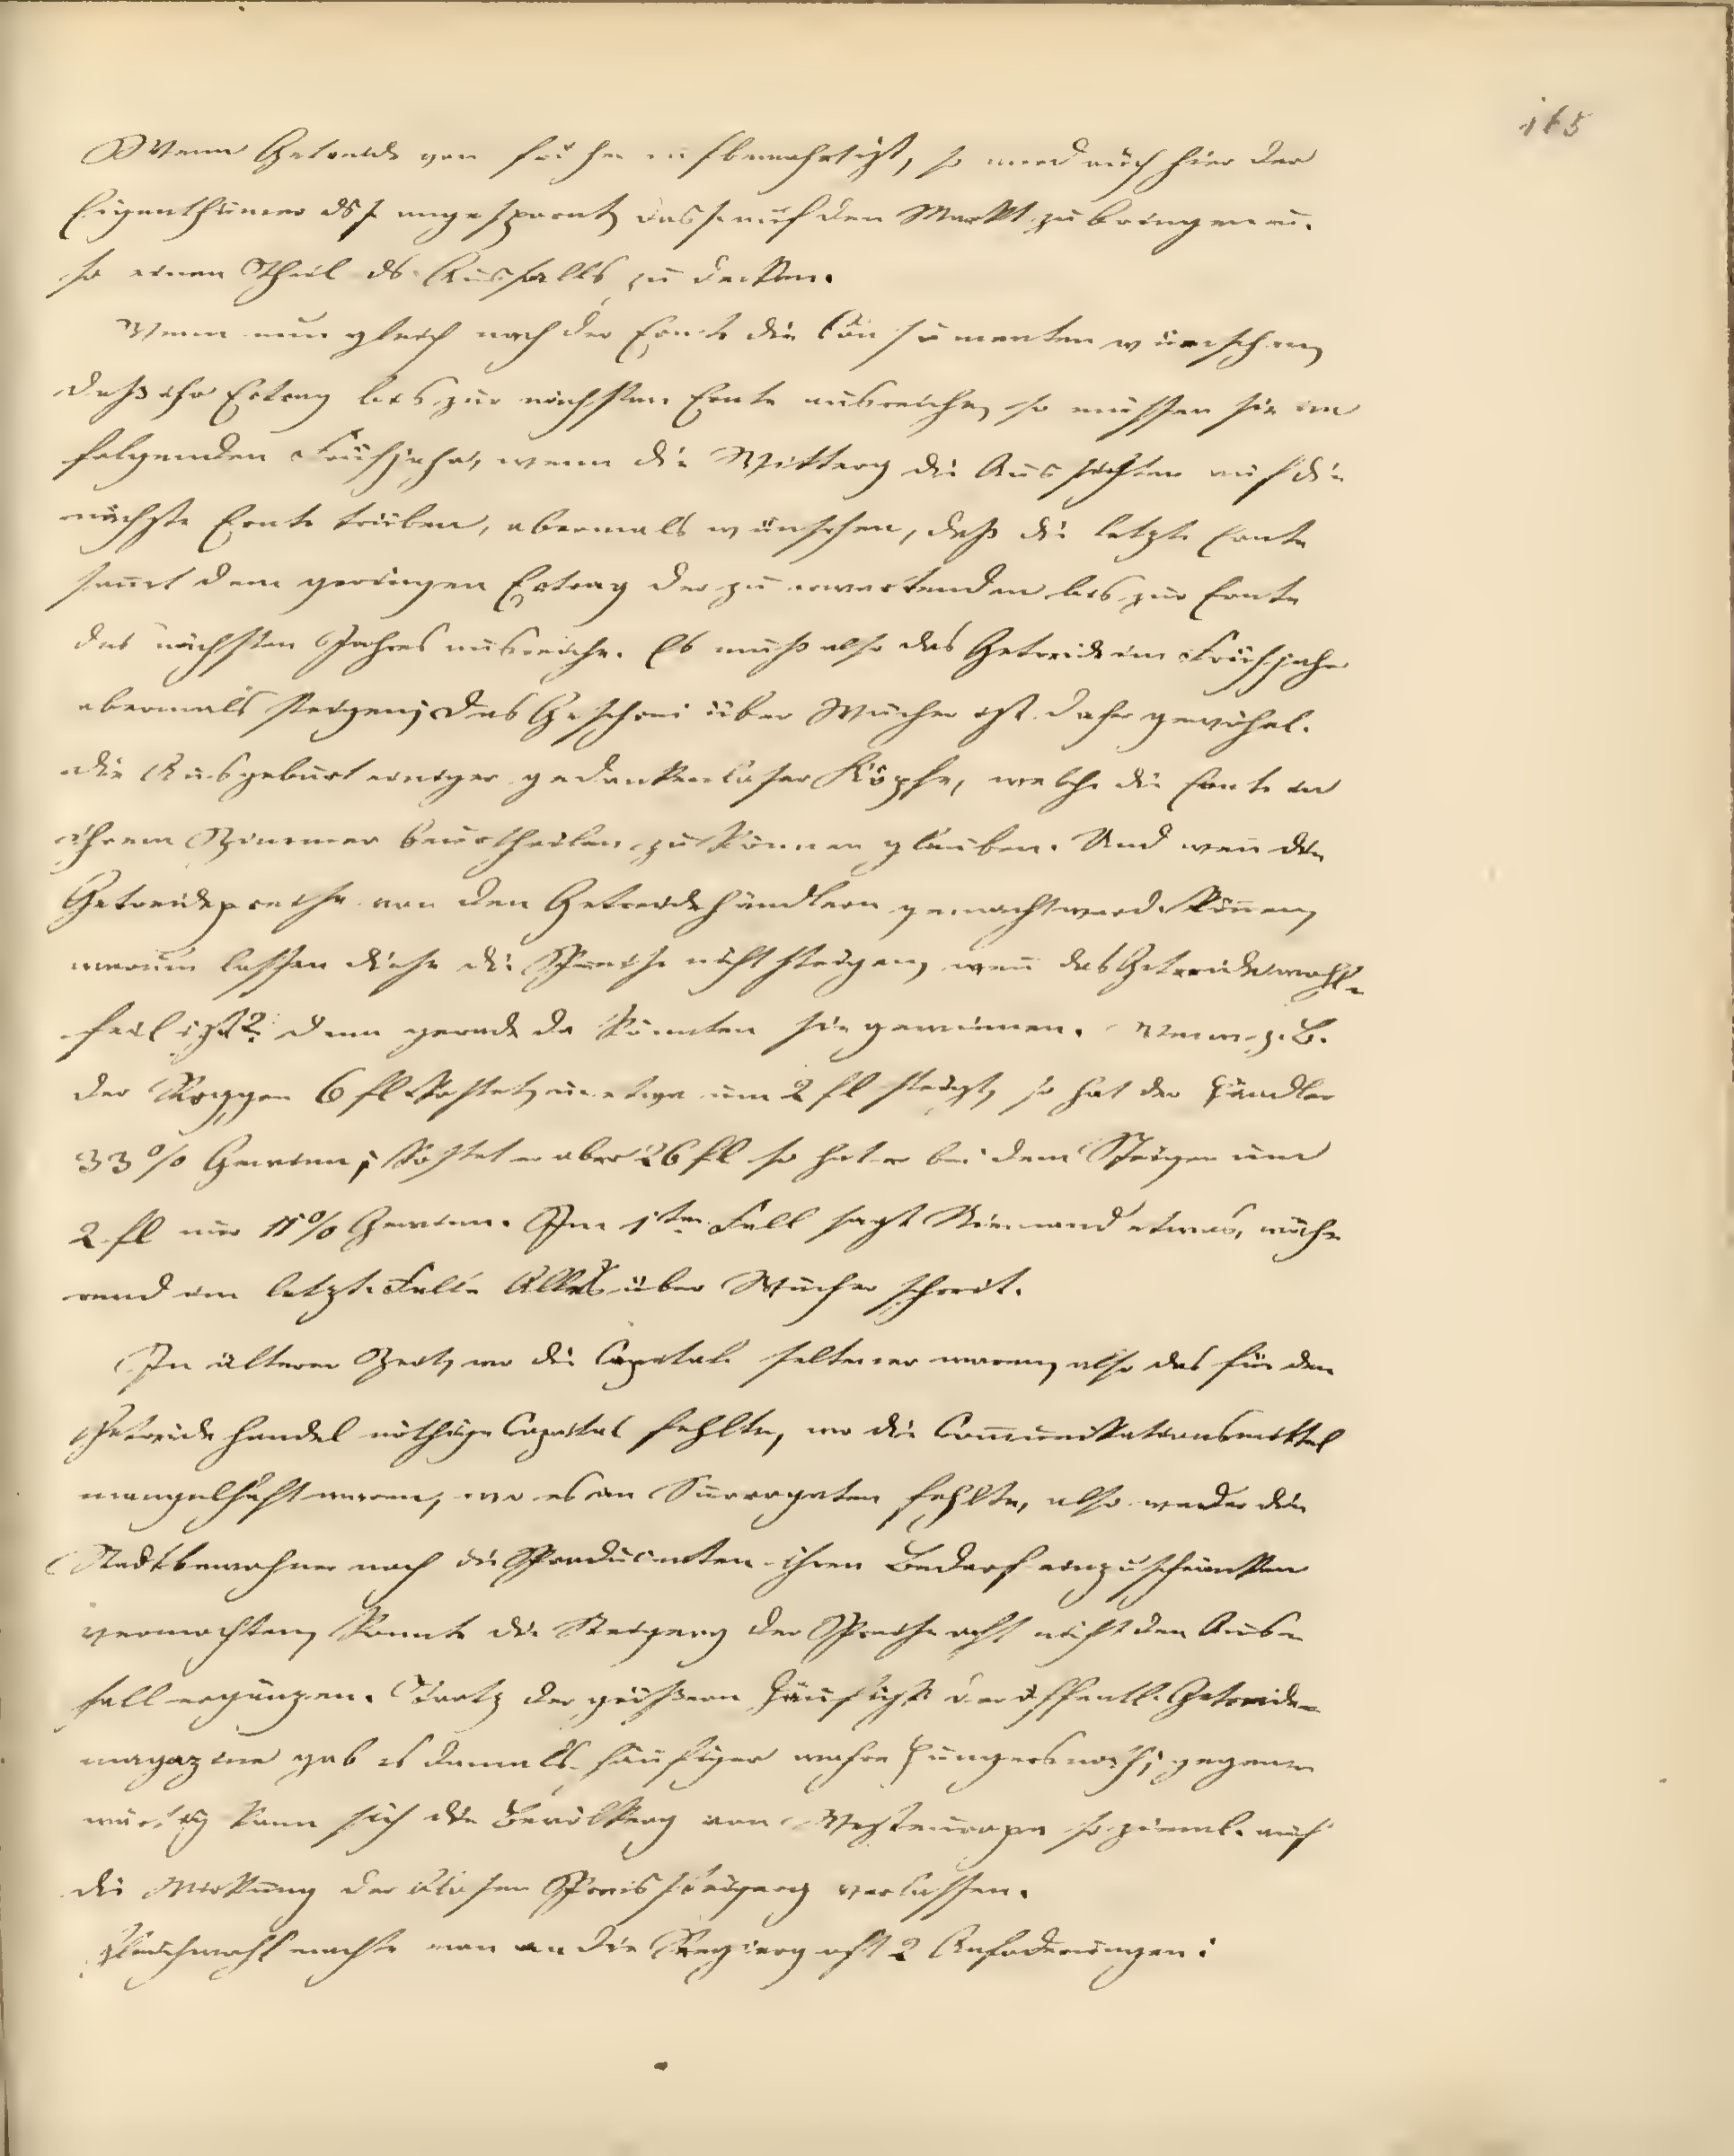 165
Wenn Getreide von früher aufbewahrt ist, so wird auch hier der
Eigenthümer dss. angespornt, dasse auf den Markt zu bringen u.
so einen Theil ds Ausfalls zu decken.
Wenn nun gleich nach der Ernte die Consumenten wünschen,
daß ihr Ertrag bis zur nächsten Ernte ausreiche, so müssen sie im
folgenden Frühjahr, wenn die Witterg die Aussichten auf die
nächste Ernte trüben, abermals wünschen, daß die letzte Ernte
samt dem geringen Ertrag der zu erwartenden bis zur Ernte
des nächsten Jahres ausreiche. Es muß also das Getreide im Frühjahr
abermals steigen; das Geschrei über Wucher ist daher gewöhnl.
die Ausgeburt einiger gedankenloser Köpfe, welche die Ernte in
ihrem Zimmer beurtheilen zu können glauben. Und wenn die
Getreidepreise von den Getreidehändlern gemacht werd. können,
warum lassen diese die Preise nicht steigen, wenn das Getreide wohl-
feil ist? denn gerade da könnten sie gewinnen. Wenn z. B.
der Roggen 6 fl kostet, u. etwa um 2 fl steigt, so hat der Händler
33 % Gewinn; kostet er aber 26 fl so hat er bei dem Steigen um
2 fl nur 11 % Gewinn. Im 1ten Fall sagt Niemand etwas, wäh-
rend im letzt. Falle Alles über Wucher schreit.
In älterer Zeit, wo die Capitale seltener waren, also das für den
Getreidehandel nöthige Capital fehlte, wo die Communikationsmittel
mangelhaft waren, wo es an Surrogaten fehlte, also weder die
Stadtbewohner noch die Producenten ihren Bedarf einzuschränken
vermochten, konnte die Steigerg der Preise oft nicht den Aus-
fall ergänzen. Trotz der größern Häufigkt der öffentl. Getreide-
magazine gab es damals häufiger wahre Hungersnoth; gegen-
wärtig kann sich die Bevölkerg von Westeuropa so zieml. auf
die Wirkung der bloßen Preissteigerg verlassen.
Gleichwohl machte man an die Regierg oft 2 Anforderungen: